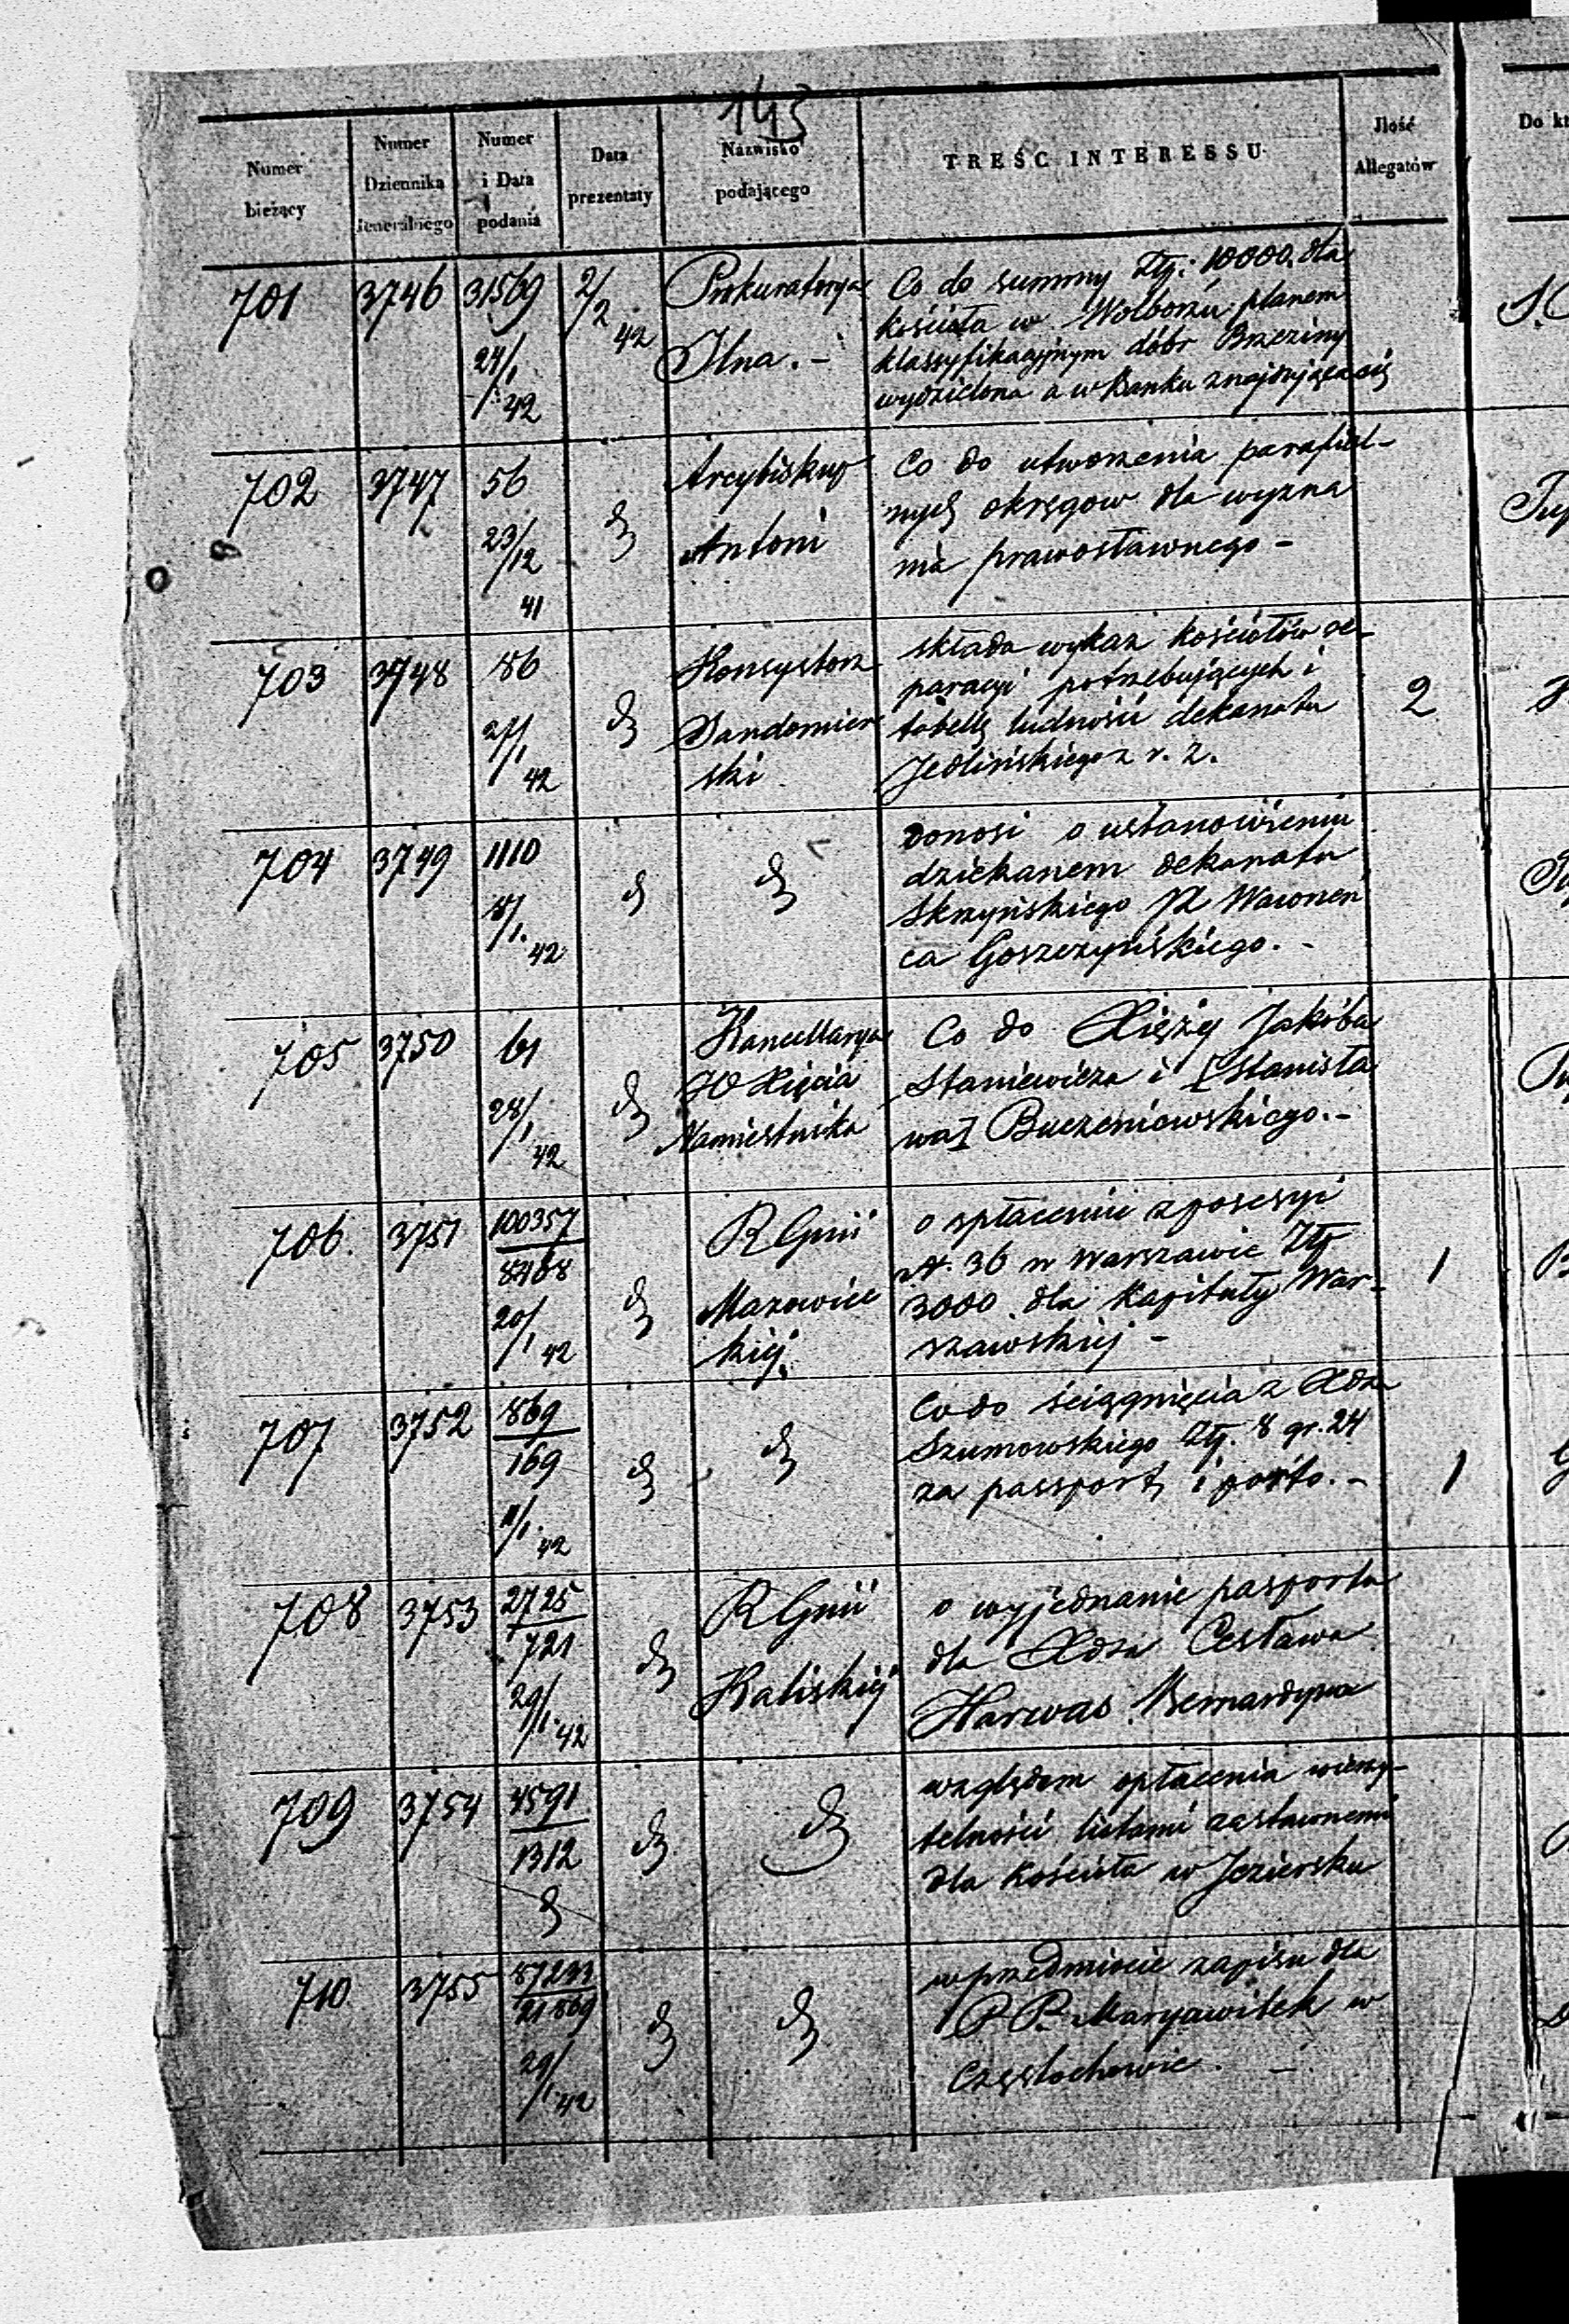 143
Numer bieżący
Numer Dziennika Jeneralnego
Numer i Data podania
Data prezentaty
Nazwisko podającego
TREŚC INTERESSU
Jlość Allegatów
Do kt
701 3746 31569 24/1 42 2/2 42
Prokuratorya
Jlna. -
Co do summy Złp: 10000. dla
kościoła w Wolborzu planem
klassyfikacyjnym dóbr Brzeziny
wydzielona a w Banku znajdująca się
702 3747 56 23/12 41
Arcybiskup
Antoni
Co do utworzenia parafial-
nych okręgow dla wyzna
nia prawosławnego -
703 3748 86 27/1 42
Konsystorz
Sandomier
ski
składa wykaz kościołów re-
paracyi potrzebujących i
tabellę ludności dekanatu
Jedlińskiego z r. z.
2
704 3749 1110 42
donosi o ustanowieniu
dziekanem dekanatu
Skrzyńskiego JX Wawrzeń
ca Goszczyńskiego. -
705 3750 61 28/1 42
Kancellarya
JO Xięcia
Namiestnika
Co do Xięży Jakóba
Staniewicza i [Stanisła
wa] Buczeniowskiego. -
706. 3751 100357 20/1 42
R Gnii
Mazowiec
kiej.
o spłacenie z posessyi
N. 36 w Warszawie Złp
3000 dla Kapituły War-
szawskiej -
1
707 3752 869 169 11/1 42
Co do ściągnięcia z Xdza
Szumowskiego Złp. 8 gr. 24
za passport i porto. -
1
708 3753 2725 721 29/1 42
R Gnii
Kaliskiej
o wyjednanie pasportu
dla Xdza Cesława
Harwas Bernardyna
709 3754 4591 1312
względem opłacenia wierzy-
telności listami zastawnemi
dla kościoła w Jeziersku
710 3755 21869 29/1 42
w przedmiocie zapisu dla
P P. Maryawitek w
Częstochowie. -